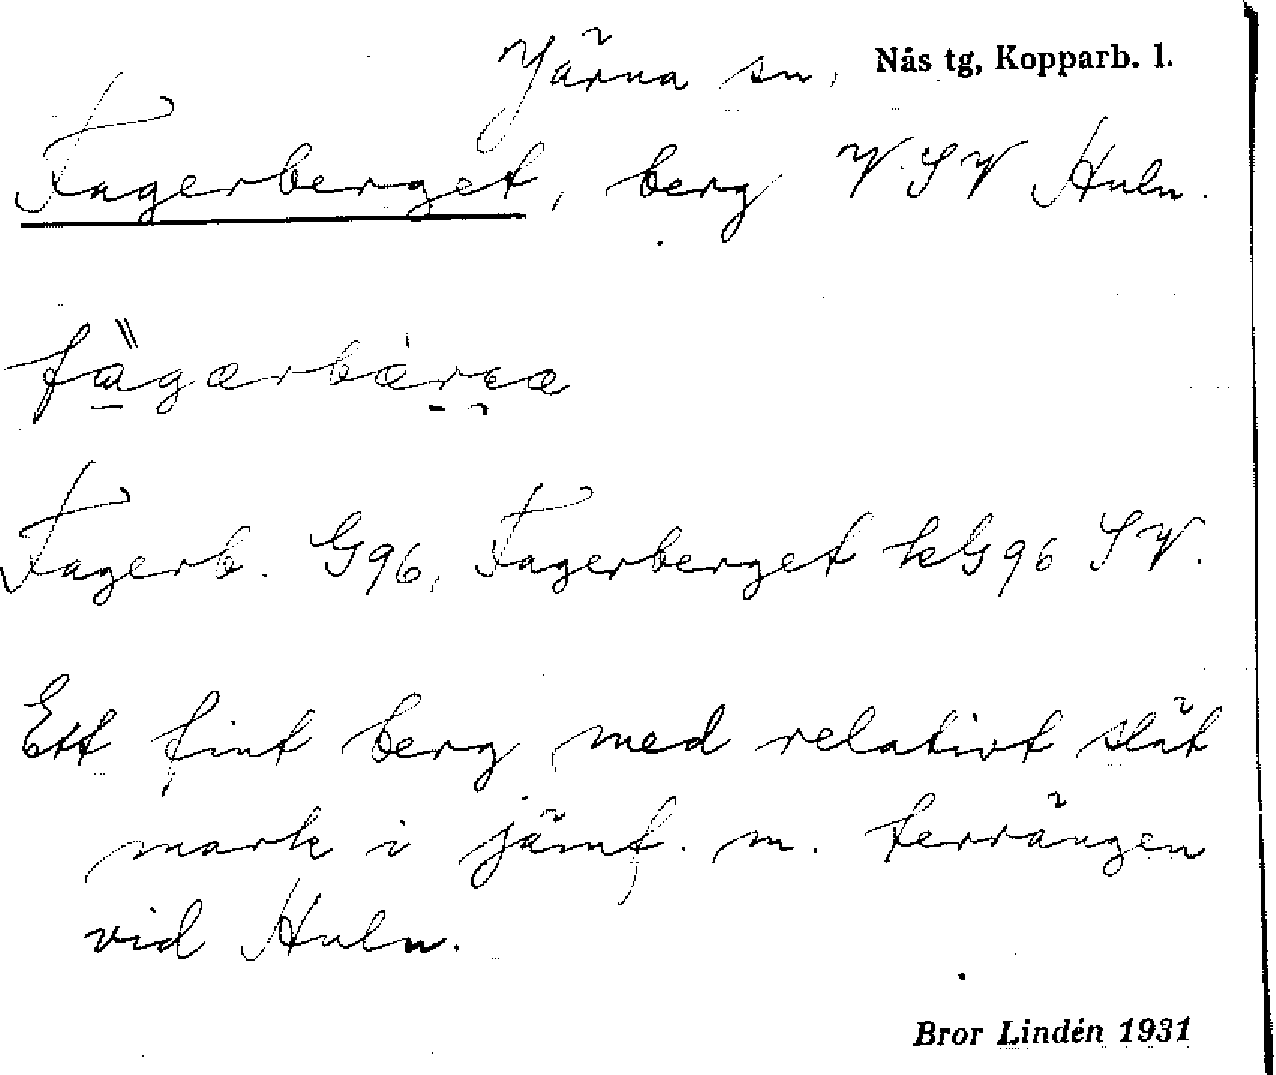 Järna sn, Nås tg, Kopparb. l.
Fagerberget, berg VSV Huln.
Fagerb. G96, Fagerberget kG96 SV.
Ett fint berg med relativt slät
mark i jämf. m. terrängen
vid Huln.
Bror Lindén 1931